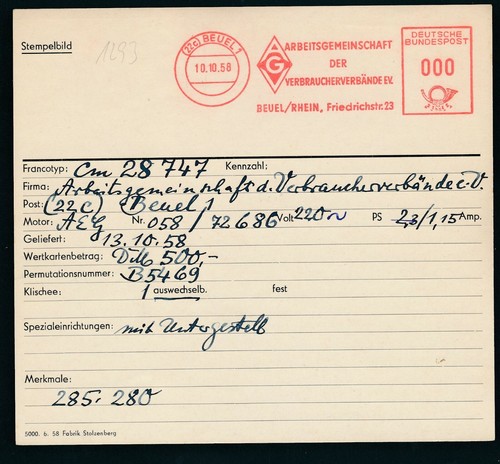 Stempelbild
1293
(22c) BEUEL 1
10.10.58
AG
ARBEITSGEMEINSCHAFT
DER
VERBRAUCHERVERBÄNDE EV.
BEUEL/RHEIN, Friedrichstr. 23
DEUTSCHE
BUNDESPOST
000
Francotyp: Cm 28 747 Kennzahl:
Firma: Arbeitsgemeinschaft d. Verbraucherverbände e.V.
Post: (22c) Beuel 1
Motor: AEG Nr. 058 / 72686 Volt 220 ~ PS 2,3/1,15 Amp.
Geliefert: 13.10.58
Wertkartenbetrag: DM 500,-
Permutationsnummer: B5469
Klischee: 1 auswechselb. fest
Spezialeinrichtungen: mit Untergestell
Merkmale:
285. 280
5000. 6. 58 Fabrik Stolzenberg